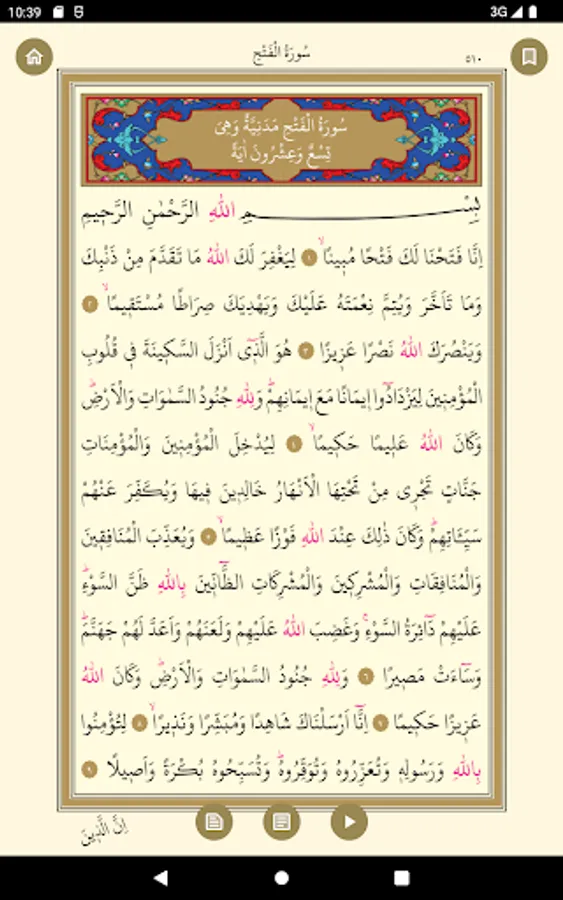 10:39
3G
سُورَةُ الْفَتْحِ
٥١٠
سُورَةُ الْفَتْحِ مَدَنِيَّةٌ وَهِيَ
تِسْعٌ وَعِشْرُونَ اٰيَةً
بِسْمِ اللّٰهِ الرَّحْمٰنِ الرَّحِيمِ
اِنَّا فَتَحْنَا لَكَ فَتْحًا مُبِينًاۙ ١ لِيَغْفِرَ لَكَ اللّٰهُ مَا تَقَدَّمَ مِنْ ذَنْبِكَ
وَمَا تَاَخَّرَ وَيُتِمَّ نِعْمَتَهُ عَلَيْكَ وَيَهْدِيَكَ صِرَاطًا مُسْتَقِيمًاۙ ٢
وَيَنْصُرَكَ اللّٰهُ نَصْرًا عَزِيزًا ٣ هُوَ الَّذِٓي اَنْزَلَ السَّكِينَةَ فِي قُلُوبِ
الْمُؤْمِنِينَ لِيَزْدَادُٓوا اِيمَانًا مَعَ اِيمَانِهِمْۜ وَلِلّٰهِ جُنُودُ السَّمٰوَاتِ وَالْاَرْضِۜ
وَكَانَ اللّٰهُ عَلِيمًا حَكِيمًاۙ ٤ لِيُدْخِلَ الْمُؤْمِنِينَ وَالْمُؤْمِنَاتِ
جَنَّاتٍ تَجْرِي مِنْ تَحْتِهَا الْاَنْهَارُ خَالِدِينَ فِيهَا وَيُكَفِّرَ عَنْهُمْ
سَيِّـَٔاتِهِمْۜ وَكَانَ ذٰلِكَ عِنْدَ اللّٰهِ فَوْزًا عَظِيمًاۙ ٥ وَيُعَذِّبَ الْمُنَافِقِينَ
وَالْمُنَافِقَاتِ وَالْمُشْرِكِينَ وَالْمُشْرِكَاتِ الظَّٓانِّينَ بِاللّٰهِ ظَنَّ السَّوْءِۜ
عَلَيْهِمْ دَٓائِرَةُ السَّوْءِۚ وَغَضِبَ اللّٰهُ عَلَيْهِمْ وَلَعَنَهُمْ وَاَعَدَّ لَهُمْ جَهَنَّمَۜ
وَسَٓاءَتْ مَصِيرًا ٦ وَلِلّٰهِ جُنُودُ السَّمٰوَاتِ وَالْاَرْضِۜ وَكَانَ اللّٰهُ
عَزِيزًا حَكِيمًا ٧ اِنَّٓا اَرْسَلْنَاكَ شَاهِدًا وَمُبَشِّرًا وَنَذِيرًاۙ ٨ لِتُؤْمِنُوا
بِاللّٰهِ وَرَسُولِهِ وَتُعَزِّرُوهُ وَتُوَقِّرُوهُۜ وَتُسَبِّحُوهُ بُكْرَةً وَاَصِيلًا ٩
اِنَّ الَّذِينَ